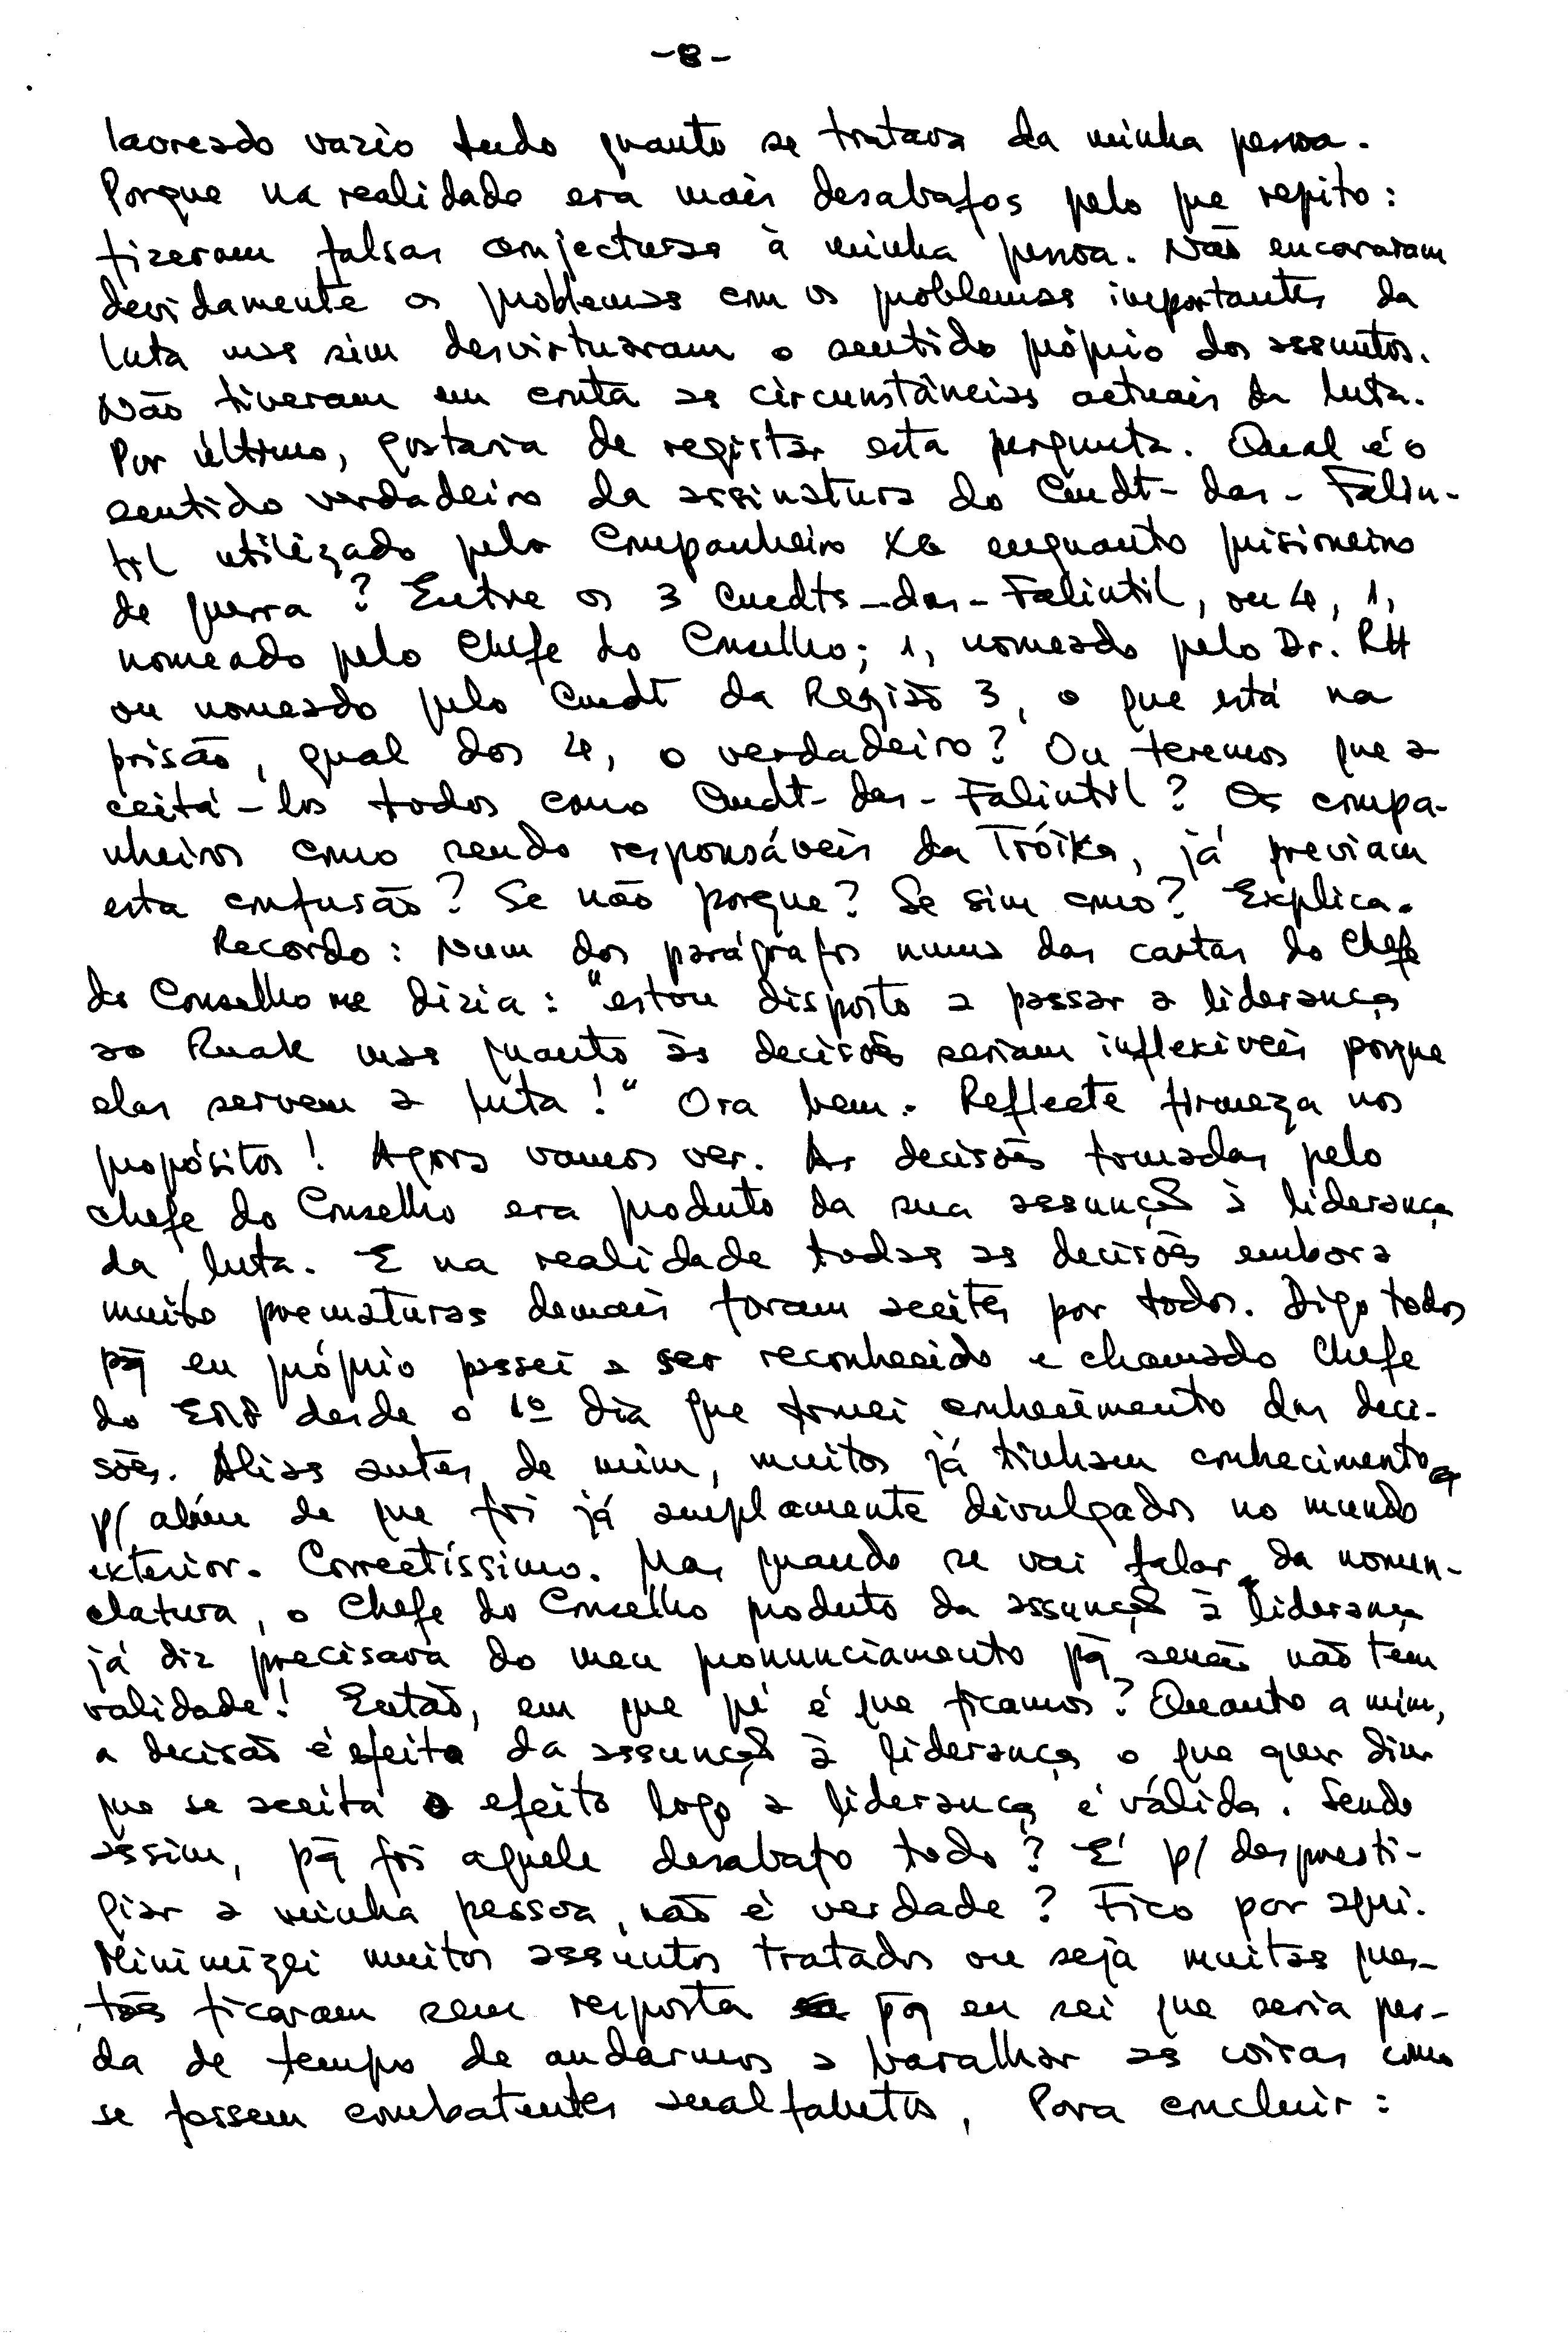 -8-
laoreado vazio tudo quanto se tratava da minha pessoa.
Porque na realidade era mais desabafos pelo que repito:
fizeram falsas conjecturas à minha pessoa. Não encararam
devidamente os problemas com os problemas importantes da
luta mas sim desvirtuaram o sentido próprio dos assuntos.
Não tiveram em conta as circunstâncias actuais da luta.
Por último, gostaria de registar esta pergunta. Qual é o
sentido verdadeiro da assinatura do Cmdt-das-Falin-
til utilizado pelo Companheiro XG enquanto prisioneiro
de guerra? Entre os 3 Cmdts-das-Falintil, ou 4, 1,
nomeado pelo Chefe do Conselho; 1, nomeado pelo Dr. RH
ou nomeado pelo Cmdt da Região 3, o que está na
prisão, qual dos 4, o verdadeiro? Ou teremos que a
ceitá-los todos como Cmdt-das-Falintil? Os compa-
nheiros como sendo responsáveis da Tróika, já previam
esta confusão? Se não porque? Se sim como? Explica.
Recordo: Num dos parágrafos numa das cartas do Chefe
do Conselho me dizia: "estou disposto a passar a liderança
ao Ruak mas quanto às decisões seriam inflexíveis porque
elas servem a luta!" Ora bem. Reflecte firmeza nos
propósitos! Agora vamos ver. As decisões tomadas pelo
Chefe do Conselho era produto da sua assunção à liderança
da luta. E na realidade todas as decisões embora
muito prematuras demais foram aceites por todos. Digo todos
pq eu próprio passei a ser reconhecido e chamado Chefe
do EMF desde o 1º dia que tomei conhecimento das deci-
sões. Alias antes de mim, muitos já tinham conhecimento
p/ além de que foi já amplamente divulgados no mundo
exterior. Correctíssimo. Mas quando se vai falar da nomen-
clatura, o Chefe do Conselho produto da assunção à liderança
já diz precisava do meu pronunciamento pq senão não tem
validade! Então, em que pé é que ficamos? Quanto a mim,
a decisão é efeito da assunção à liderança o que quer dizer
que se aceita o efeito logo a liderança é válida. Sendo
assim, pq foi aquele desabafo todo? É p/ despresti-
giar a minha pessoa, não é verdade? Fico por aqui.
Minimizei muitos assuntos tratados ou seja muitas ques-
tões ficaram sem resposta pq eu sei que seria per-
da de tempo de andarmos a baralhar as coisas como
se fossem combatentes analfabetos, Para concluir: